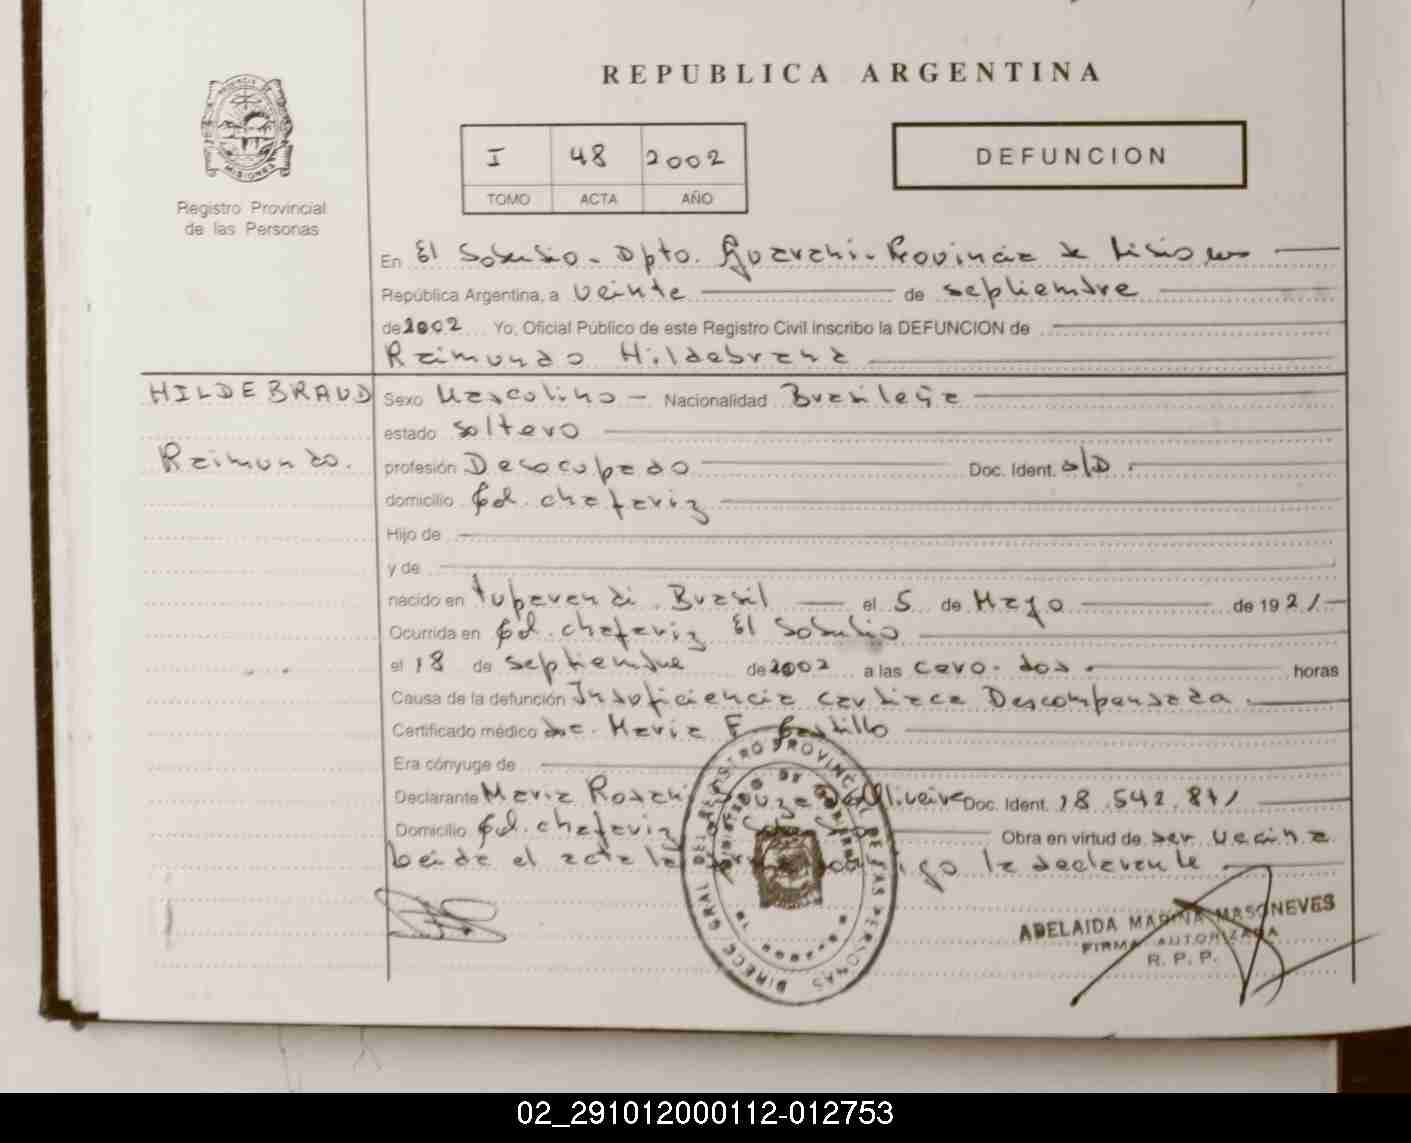 REPUBLICA ARGENTINA
I 48 2002
TOMO ACTA AÑO
DEFUNCION
MISIONES
Registro Provincial
de las Personas
En El Soberbio - Dpto. Guarani - Provincia de Misiones
República Argentina, a veinte de septiembre
de 2002 Yo, Oficial Público de este Registro Civil inscribo la DEFUNCION de
Raimundo Hildebrand
HILDEBRAND
Raimundo.
Sexo Masculino - Nacionalidad Brasileña
estado soltero
profesión Desocupado Doc. Ident. s/D.
domicilio Col. chafariz
Hijo de
y de
nacido en tuparendi. Brasil el 5 de Mayo de 1921
Ocurrida en Col. chafariz El Soberbio
el 18 de septiembre de 2002 a las cero. dos. horas
Causa de la defunción Insuficiencia cardiaca Descompensada.
Certificado médico doc. Maria F. Castillo
Era cónyuge de
Declarante Maria Rosani Souza De Oliveira Doc. Ident. 18.542.871
Domicilio Col. chafariz Obra en virtud de ser vecina
leida el acta la firma conmigo la declarante
DIRECC GRAL DEL REGISTRO PROVINCIAL DE LAS PERSONAS
MINISTERIO DE GOBIERNO
ADELAIDA MARINA MASONEVES
FIRMA AUTORIZADA
R. P. P.
02_291012000112-012753